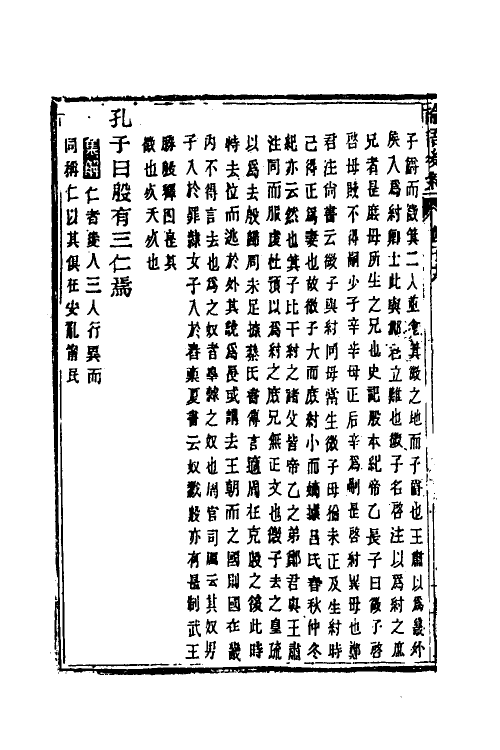 子爵而微箕二人並食其微之地而子爵也王肅以爲畿外
侯入爲紂卿士此與鄭君立難也微子名啓注以爲紂之庶
兄者是庶母所生之兄也史記殷本紀帝乙長子曰微子啓
啓母賤不得嗣少子辛辛母正后辛爲嗣是啓紂異母也鄭
君注尚書云微子與紂同母當生微子母猶未正及生紂時
己得正爲妻也故微子大而庶紂小而嫡據呂氏春秋仲冬
紀亦云然也箕子比干紂之諸父皆帝乙之弟鄭君與王肅
注同而服虔杜預以爲紂之庶兄無正文也微子去之皇疏
以爲去殷歸周未足據蔡氏書傳言適周在克殷之後此時
特去位而逃於外其說爲長或謂去王朝而之國則國在畿
內不得言去也爲之奴者舉隸之奴也周官司厲云其奴男
子入於罪隸女子入於舂槀夏書云奴戮殷亦有是制武王
勝殷釋囚是其
徵也疚天疚也
孔子曰殷有三仁焉
集解仁者愛人三人行異而
同稱仁以其俱在安亂甯民